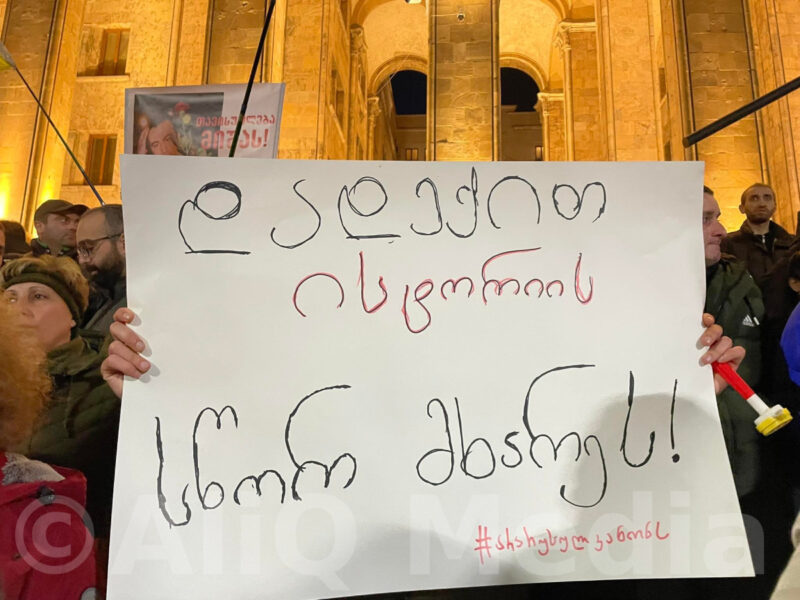 თავისუფლება
მიშას!
დადექით
ისტორიის
სწორ მხარეს!
#არარუსულკანონს
©AliQ Media